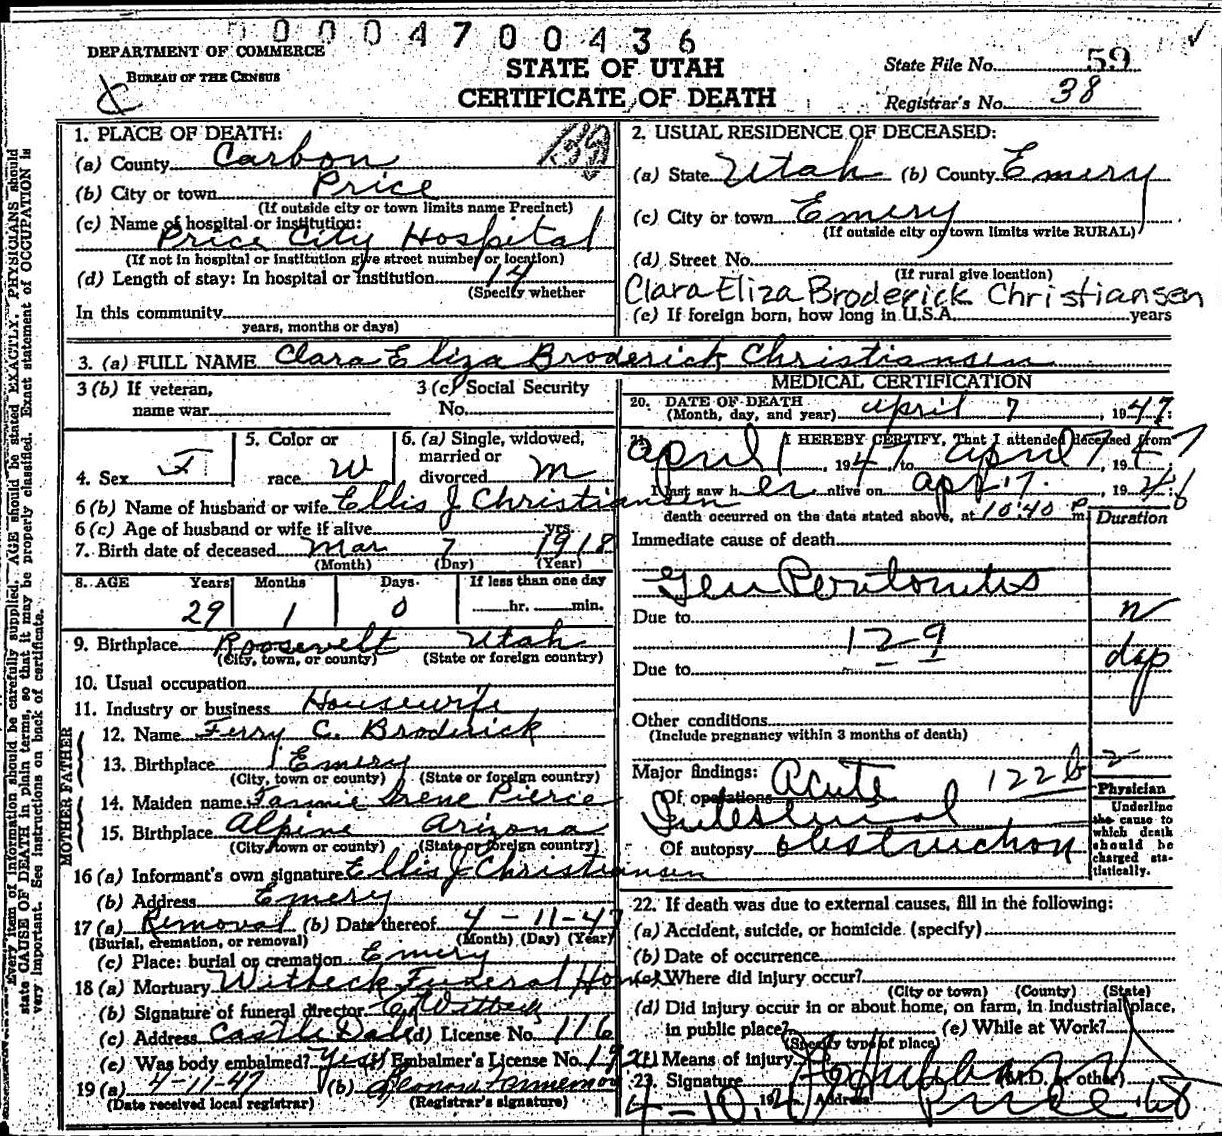 00004700436
DEPARTMENT OF COMMERCE
BUREAU OF THE CENSUS
STATE OF UTAH
CERTIFICATE OF DEATH
State File No. 59
Registrar's No. 38
Every item of information should be carefully supplied. AGE should be stated EXACTLY. PHYSICIANS should
state CAUSE OF DEATH in plain terms, so that it may be properly classified. Exact statement of OCCUPATION is
very important. See instructions on back of certificate.
1. PLACE OF DEATH:
(a) County Carbon
(b) City or town Price
(If outside city or town limits name Precinct)
(c) Name of hospital or institution:
Price City Hospital
(If not in hospital or institution give street number or location)
(d) Length of stay: In hospital or institution 14
(Specify whether
In this community
years, months or days)
2. USUAL RESIDENCE OF DECEASED:
(a) State Utah (b) County Emery
(c) City or town Emery
(If outside city or town limits write RURAL)
(d) Street No.
(If rural give location)
Clara Eliza Broderick Christiansen
(e) If foreign born, how long in U.S.A. years
3. (a) FULL NAME Clara Eliza Broderick Christiansen
3 (b) If veteran,
name war
3 (c) Social Security
No.
4. Sex F
5. Color or
race W
6. (a) Single, widowed,
married or
divorced M
6 (b) Name of husband or wife Ellis J Christiansen
6 (c) Age of husband or wife if alive yrs.
7. Birth date of deceased Mar 7 1918
(Month) (Day) (Year)
8. AGE Years Months Days If less than one day
29 1 0 hr. min.
9. Birthplace Roosevelt Utah
(City, town, or county) (State or foreign country)
10. Usual occupation
11. Industry or business Housewife
FATHER
12. Name C. Broderick
13. Birthplace Emery
(City, town or county) (State or foreign country)
MOTHER
14. Maiden name Irene Pierce
15. Birthplace Alpine Arizona
(City, town or county) (State or foreign country)
16 (a) Informant's own signature Ellis J Christiansen
(b) Address Emery
17 (a) Removal (b) Date thereof 4-11-47
(Burial, cremation, or removal) (Month) (Day) (Year)
(c) Place: burial or cremation Emery
18 (a) Mortuary Witbeck Funeral Home
(b) Signature of funeral director Witbeck
(c) Address Castle Dale (d) License No. 116
(e) Was body embalmed? Yes (f) Embalmer's License No.
19 (a) 4-11-47 (b)
(Date received local registrar) (Registrar's signature)
MEDICAL CERTIFICATION
20. DATE OF DEATH
(Month, day, and year) April 7, 1947
21. I HEREBY CERTIFY, That I attended deceased from
April 1, 1947 to April 7, 1947
I last saw her alive on Apr. 7. 19
death occurred on the date stated above, at 10:40 P m.
Duration
Immediate cause of death
Gen Peritonitis
Due to
129
Due to
Other conditions
(Include pregnancy within 3 months of death)
Major findings:
Of operations Acute 122b 2
Intestinal
Of autopsy obstruction
Physician
Underline
the cause to
which death
should be
charged sta-
tistically.
22. If death was due to external causes, fill in the following:
(a) Accident, suicide, or homicide (specify)
(b) Date of occurrence
(c) Where did injury occur?
(City or town) (County) (State)
(d) Did injury occur in or about home, on farm, in industrial place,
in public place? (e) While at Work?
(Specify type of place)
(f) Means of injury
23. Signature (M.D. or other)
Address Price